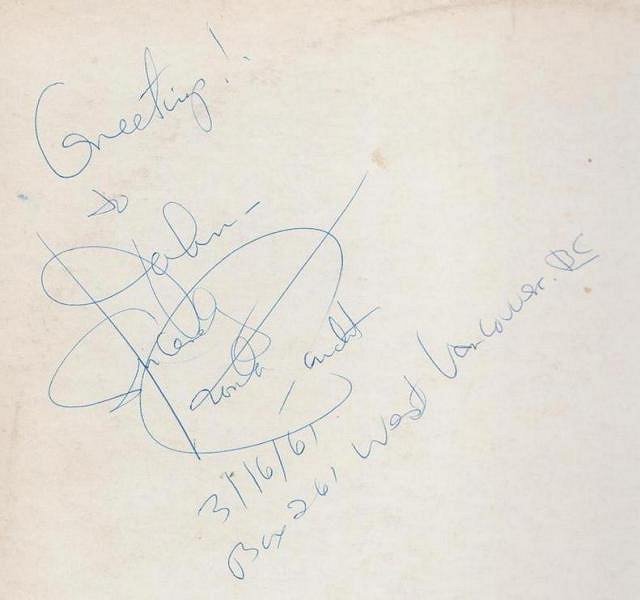 Greeting!
to
John -
3/16/61
Box 261 West Vancouver. BC